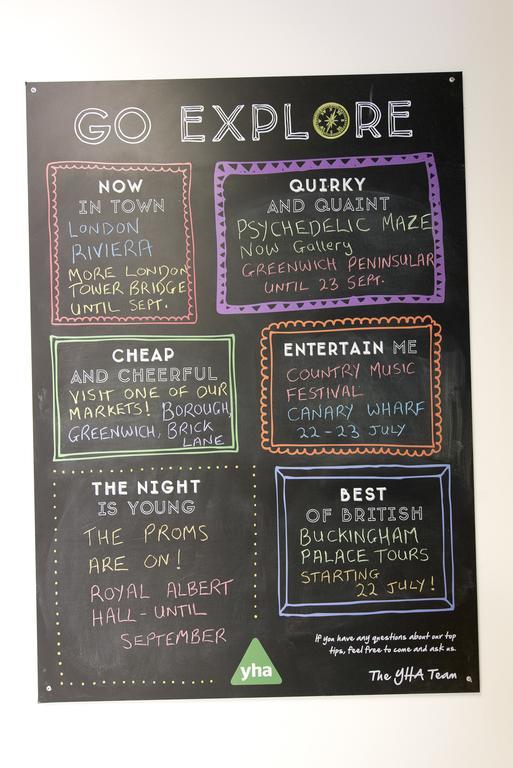 GO EXPLORE
NOW
IN TOWN
LONDON
RIVIERA
MORE LONDON
TOWER BRIDGE
UNTIL SEPT.
QUIRKY
AND QUAINT
PSYCHEDELIC MAZE
NOW Gallery
GREENWICH PENINSULAR
UNTIL 23 SEPT.
CHEAP
AND CHEERFUL
VISIT ONE OF OUR
MARKETS! BOROUGH,
GREENWICH, BRICK
LANE
ENTERTAIN ME
COUNTRY MUSIC
FESTIVAL
CANARY WHARF
22-23 JULY
THE NIGHT
IS YOUNG
THE PROMS
ARE ON!
ROYAL ALBERT
HALL - UNTIL
SEPTEMBER
BEST
OF BRITISH
BUCKINGHAM
PALACE TOURS
STARTING
22 JULY!
If you have any questions about our top
tips, feel free to come and ask us.
The YHA Team
yha